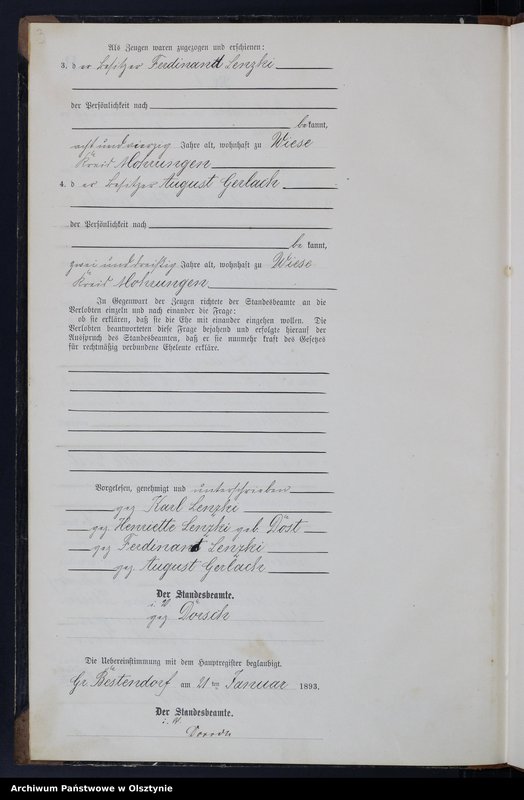 3
Als Zeugen waren zugezogen und erschienen:
3. d er Besitzer Ferdinand Lenzki
der Persönlichkeit nach
bekannt,
acht und vierzig Jahre alt, wohnhaft zu Wiese
Kreis Mohrungen
4. d er Besitzer August Gerlach
der Persönlichkeit nach
be kannt,
zwei und dreißig Jahre alt, wohnhaft zu Wiese
Kreis Mohrungen
In Gegenwart der Zeugen richtete der Standesbeamte an die
Verlobten einzeln und nach einander die Frage:
ob sie erklären, daß sie die Ehe mit einander eingehen wollen. Die
Verlobten beantworteten diese Frage bejahend und erfolgte hierauf der
Ausspruch des Standesbeamten, daß er sie nunmehr kraft des Gesetzes
für rechtmäßig verbundene Eheleute erkläre.
Vorgelesen, genehmigt und unterschrieben
gez Karl Lenzki
gez Henriette Lenzki geb. Döst
gez Ferdinand Lenzki
gez. August Gerlach
Der Standesbeamte.
i. V.
gez Dörsch
Die Uebereinstimmung mit dem Hauptregister beglaubigt.
Gr. Bestendorf am 21 ten Januar 1893.
Der Standesbeamte.
i. V.
Archiwum Państwowe w Olsztynie